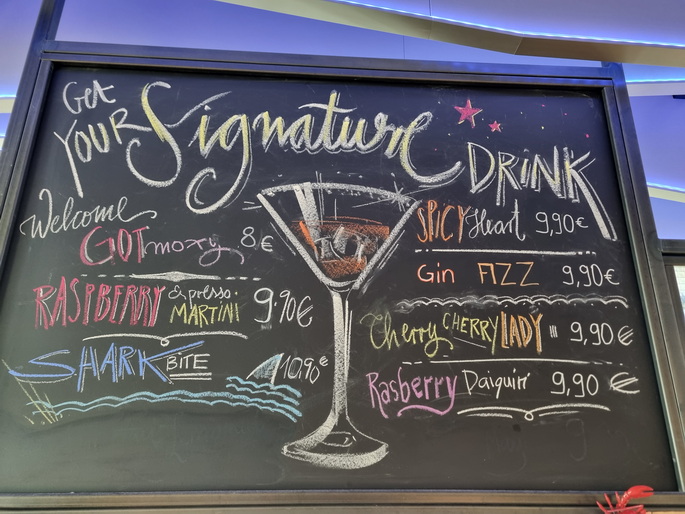 Get
YOUR Signature DRINK
Welcome
GOT moxy 8€
RASPBERRY Espresso. MARTINI 9.90€
SHARK BITE 10,90€
SPICY Heart 9,90€
Gin FIZZ 9,90€
Cherry CHERRY LADY 9,90€
Rasberry Daiquiri 9,90€